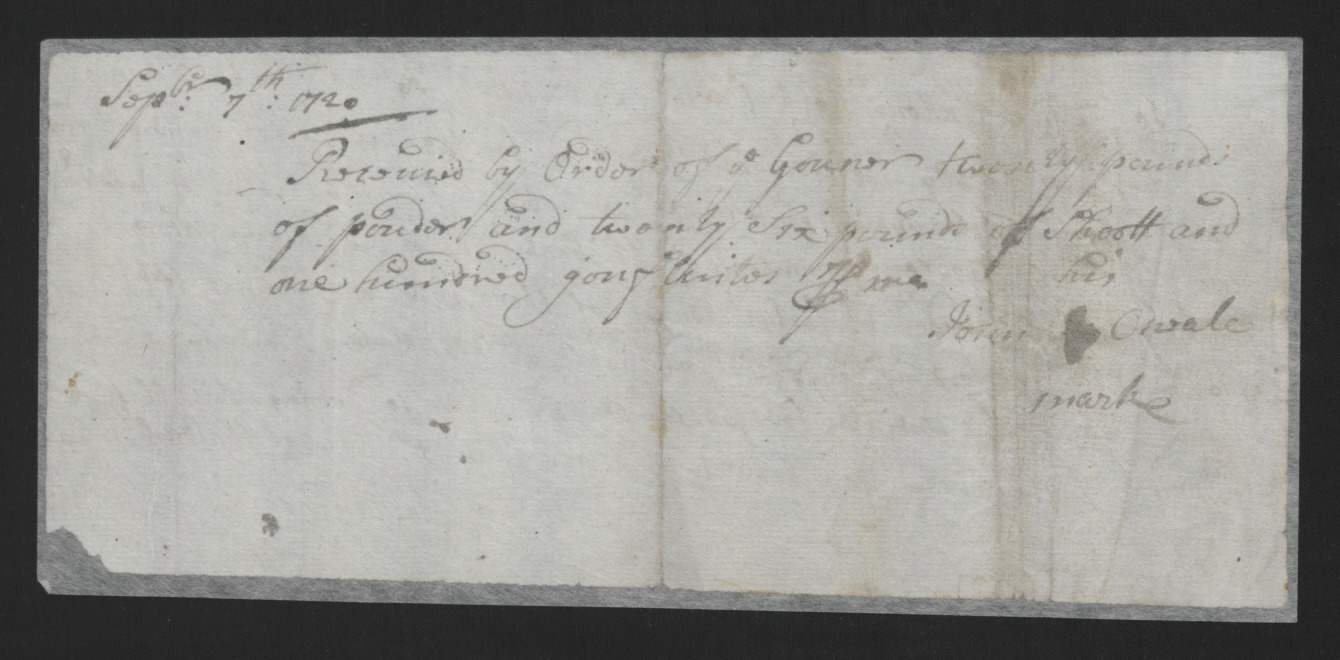 Sepbr: 7th: 1720
Receued by Order of ye Gouner twenty pounds
of pouder and twenty Six pounds of Shott and
one hundred gong flintes pr me his
John Owale
mark